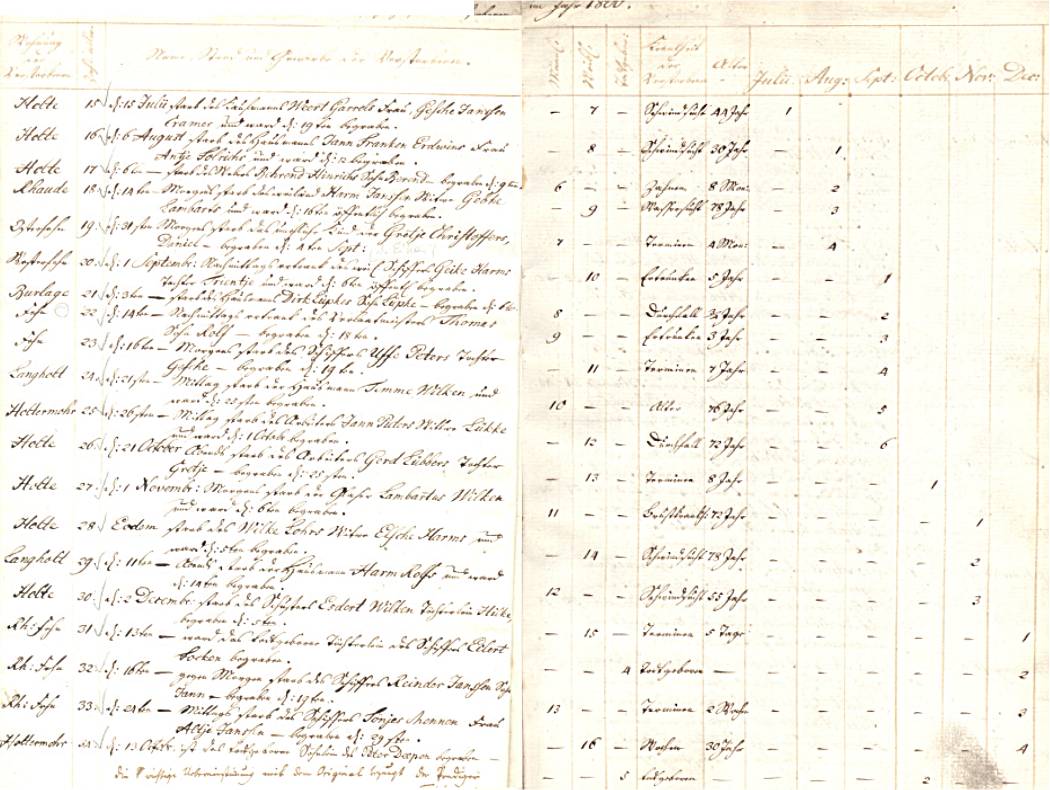 im Jahr 1800.
Wohnung der Verstorbenen
Name, Stand und Gewerbe der Verstorbenen.
Männl: Weibl: Todtgebor: Krankheit der Verstorbenen Alter Julii Aug: Sept: Octob: Nov: Dec:
Holte 15 d: 15 Julii starb des Kaufmanns Weert Garrels Frau, Gesche Janssen — 7 — Schwindsucht 44 Jahr 1
Cramer und ward d: 19ten begraben.
Holte 16 d: 6 August starb des Hausmanns Jann Franken Erdwins Frau — 8 — Schwindsucht 30 Jahr — 1
Antje und ward d: 12 begraben.
Holte 17 d: 6ten — starb des Webers Behrend Hinrichs Sohn Berend — begraben d: 9ten 6 — — Zahnen 8 Mon: — 2
Rhaude 18 d: 14ten — Morgens starb des weiland Harm Janssen Witwe Geeske — 9 — Wassersucht 78 Jahr — 3
Lambarts und ward d: 16ten öffentlich begraben.
19 d: 31sten Morgens starb das uneheliche Kind der Gretje Christoffers, 7 — — Termin 4 Mon: — 4
Daniel — begraben d: 4ten Sept:
20 d: 1 Septembr: Nachmittags ertrank des Schiffers Geike Harms — 10 — Ertrunken 5 Jahr — — 1
Tochter Trientje und ward d: 6ten öffentl begraben.
Burlage 21 d: 3ten — starb des Hausmanns Dirk Lüpkes Sohn Lüpke — begraben d: 8 — — Durchfall — — 2
Fehn 22 d: 14ten — Nachmittags ertrank des Thomas 9 — — Ertrunken 3 Jahr — — 3
Sohn Rolf — begraben d: 18ten.
Fehn 23 d: 16ten — Morgens starb des Schiffers Uffe Peters Tochter — 11 — Termin 7 Jahr — — 4
Gesche — begraben d: 19ten.
Langholt 24 d: 21sten — Mittag starb der Hausmann Temme Wilken und 10 — — Alter 76 Jahr — — 5
ward d: 25sten begraben.
Holtermohr 25 d: 26sten — Mittag starb des Arbeiters Jann Peters Witwe Lükke — 12 — Durchfall 72 Jahr — — 6
und ward d: 1 Octob: begraben.
Holte 26 d: 21 October Abends starb des Arbeiters Gerd Lübbers Tochter — 13 — Termin 8 Jahr — — — 1
Gretje — begraben d: 25sten.
Holte 27 d: 1 Novembr: Morgens starb der Lambartus Wilken 11 — — Brustkrankh 72 Jahr — — — — 1
und ward d: 6ten begraben.
Holte 28 Eodem starb des Wilke Lohrs Witwe Elsche Harms und — 14 — Schwindsucht 78 Jahr — — — — 2
ward d: 5ten begraben.
Langholt 29 d: 11ten — Abends starb der Hausmann Harm Rolfs und ward 12 — — Schwindsucht 55 Jahr — — — — 3
d: 14ten begraben.
Holte 30 d: 2 Decembr: starb des Schusters Esdert Wilken Töchterlein Hilke, — 15 — Termin 5 Tage — — — — — 1
begraben d: 5ten.
Rh: Fehn 31 d: 13ten — ward das todtgeborne Töchterlein des Schiffers Eilert — — 4 Todtgeboren — — — — — — 2
Focken begraben.
Rh: Fehn 32 d: 16ten — gegen Morgen starb des Schiffers Reinder Janssen Sohn 13 — — Termin 2 Woch — — — — — 3
Jann — begraben d: 19ten.
Rh: Fehn 33 d: 24ten — Mittags starb des Schiffers Sonjes Mennen Frau — 16 — Wochen 30 Jahr — — — — — 4
Altje Janssen — begraben d: 29sten.
Holtermohr 34 d: 13 Octob: ist des todtgeborne Söhnlein des Peter begraben — — — 5 todtgeboren — — — — 2 — —
die richtige Uebereinstimmung mit dem Original bezeugt der Prediger